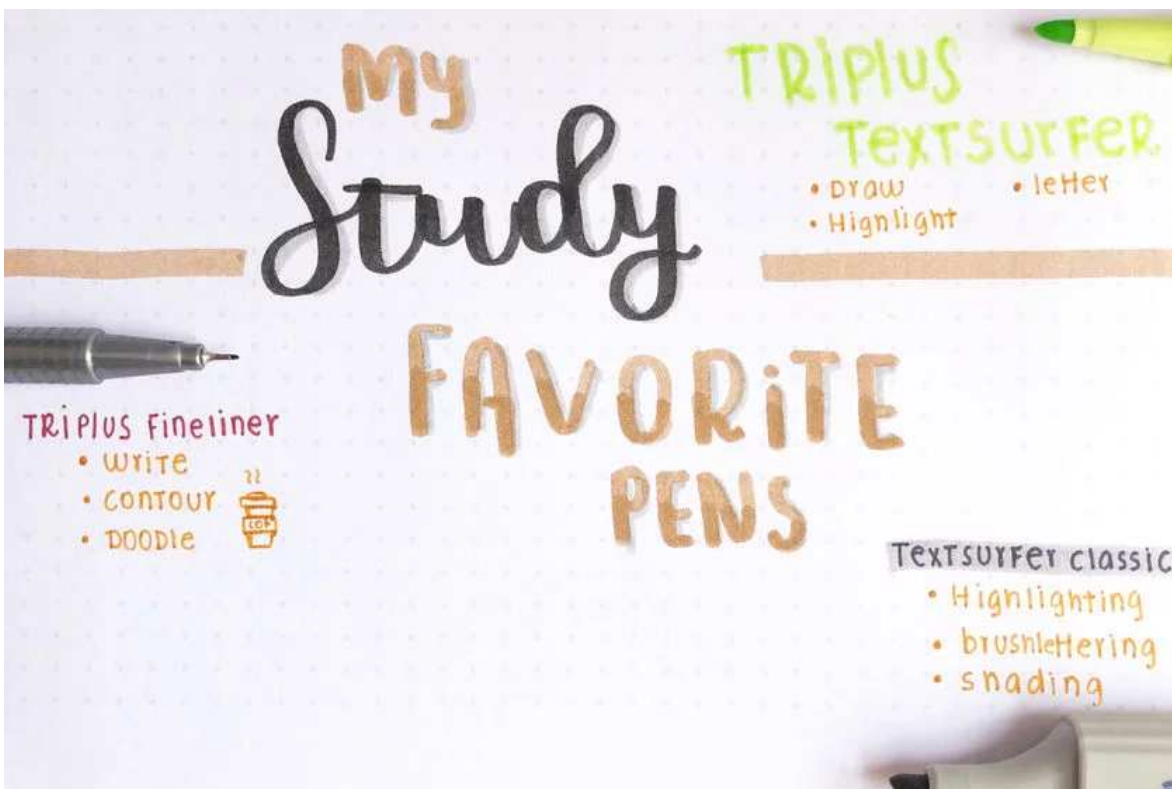 My
Study
FAVORiTE
PENS
TRiPlus
TexTsurfer
• Draw
• letter
• Highlight
TRiPlus Fineliner
• write
• contour
• DOODle
COF
Textsurfer classic
• Highlighting
• brushlettering
• shading